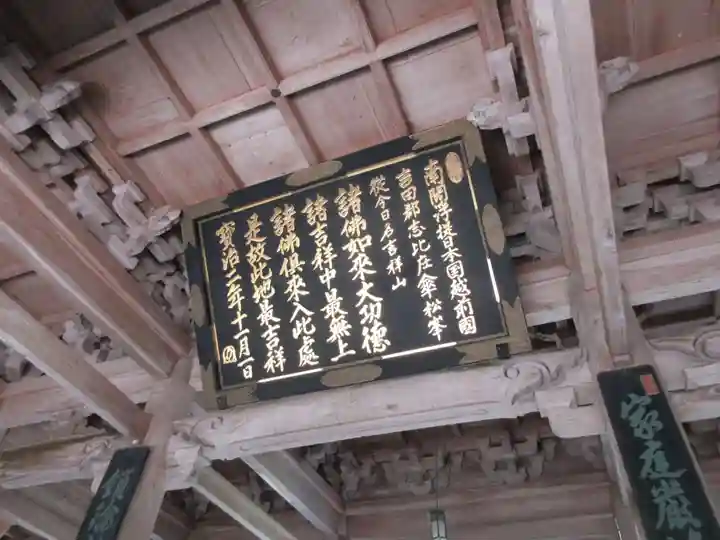 南閻浮提日本国越前國
吉田郡志比庄傘松峯
從今日名吉祥山
諸佛如來大功德
諸吉祥中最無上
諸佛俱來入此處
是故此地最吉祥
寳治二年十一月一日
家庭嚴